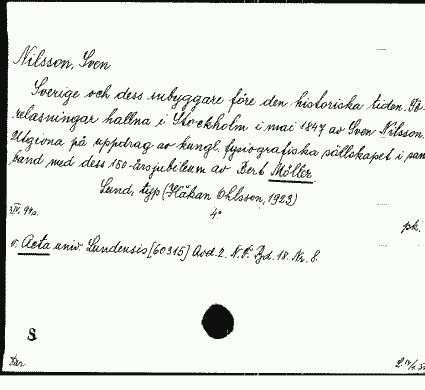 Nilsson, Sven
Sverige och dess inbyggare före den historiska tiden. Fö-
reläsningar hållna i Stockholm i maj 1847 av Sven Nilsson.
Utgivna på uppdrag av kungl. fysiografiska sällskapet i sam-
band med dess 150-årsjubileum av Bert Möller.
Lund, typ (Håkan Ohlsson, 1923)
4°
pk.
v. Acta univ. Lundensis [60315] Avd. 2. N.F. Bd. 18. Nr. 8.
8